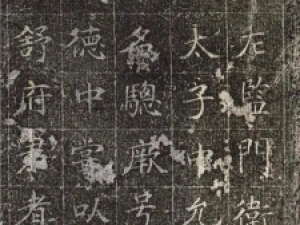 左監門衛
太子中允
名驄厥号
德中嘗以
舒府者